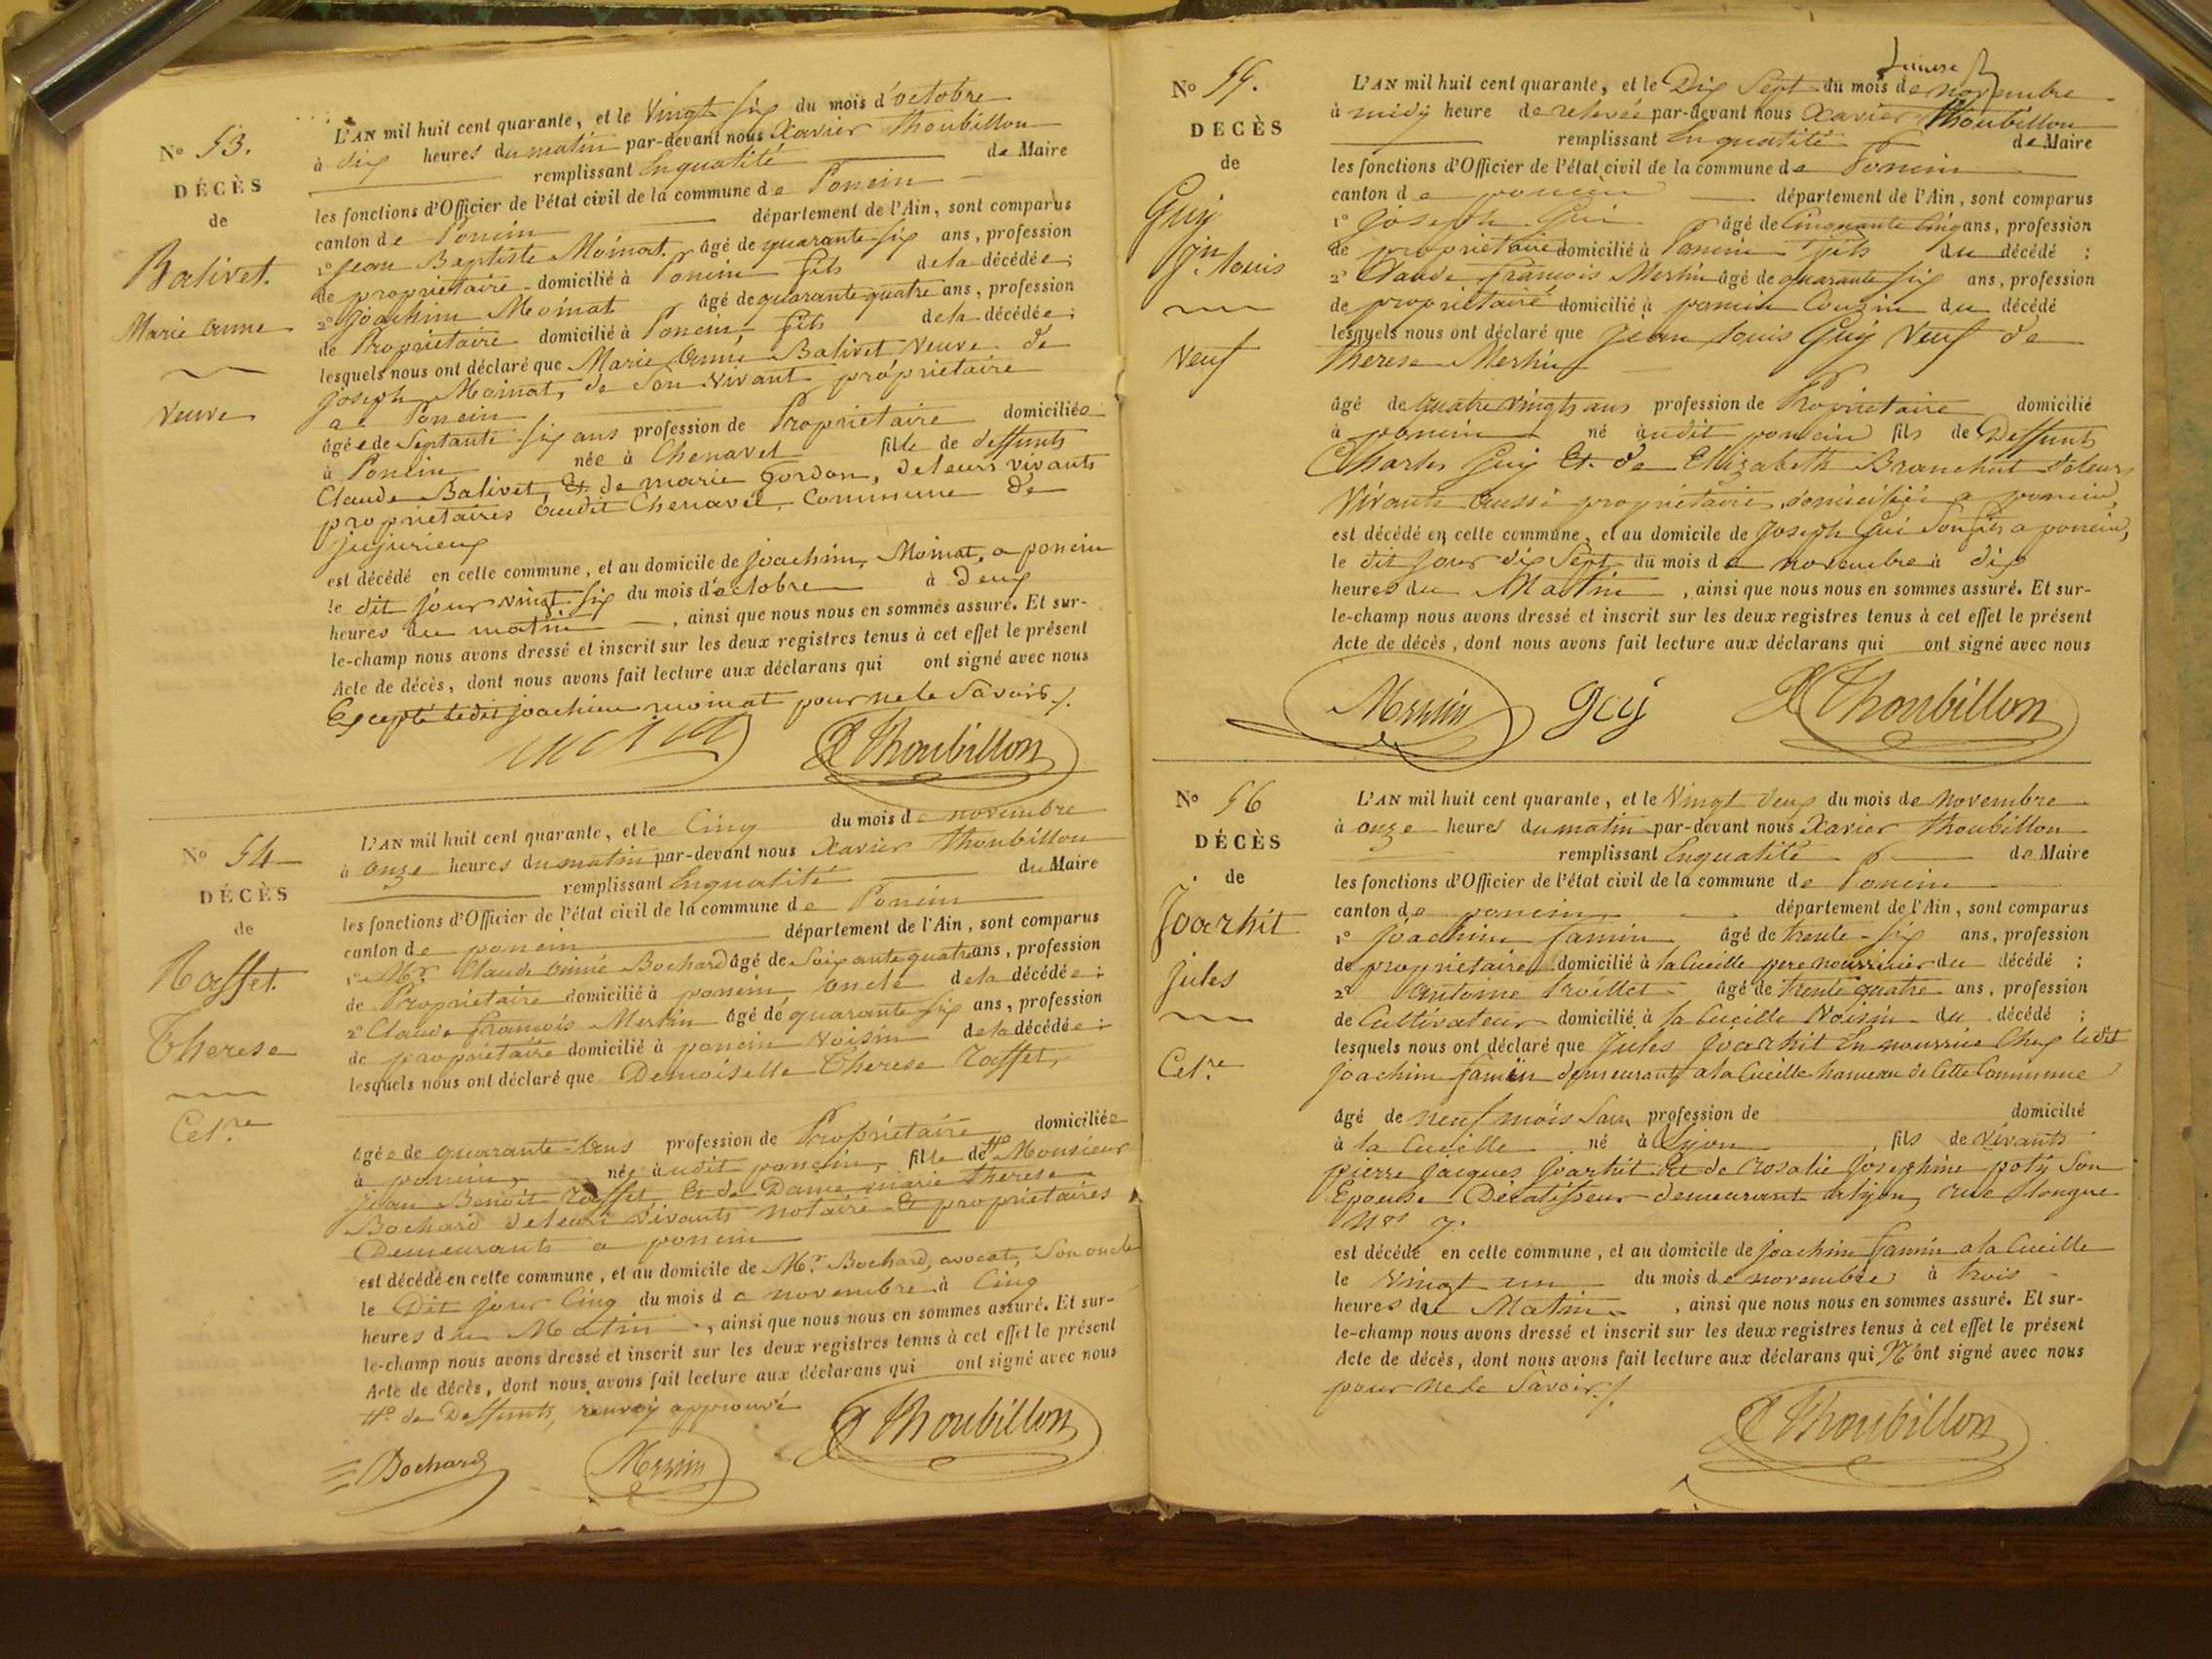 N° 53.
DÉCÈS
de
Balivet.
Marie Anne
Veuve
L'AN mil huit cent quarante, et le Vingt six du mois d'octobre
à dix heures du matin par-devant nous Xavier Thoubillon
remplissant En qualité de Maire
les fonctions d'Officier de l'état civil de la commune de Poncin
canton de Poncin département de l'Ain, sont comparus
1° Jean Baptiste Moinat âgé de quarante six ans, profession
de propriétaire domicilié à Poncin fils de la décédée;
2° Joachim Moinat âgé de quarante quatre ans, profession
de Propriétaire domicilié à Poncin, fils de la décédée;
lesquels nous ont déclaré que Marie Anne Balivet Veuve de
joseph Moinat, de son vivant propriétaire
a Poncin
âgée de Septante six ans profession de Propriétaire domiciliée
à Poncin née à Chenavel fille de deffunts
Claude Balivet, & de marie Gordon, de leurs vivants
propriétaires audit Chenavel, Commune de
jujurieux
est décédé en cette commune, et au domicile de joachim Moinat, a poncin
le dit jour vingt six du mois d'octobre à deux
heures du matin, ainsi que nous nous en sommes assuré. Et sur-
le-champ nous avons dressé et inscrit sur les deux registres tenus à cet effet le présent
Acte de décès, dont nous avons fait lecture aux déclarans qui ont signé avec nous
Excepté ledit joachim moinat pour ne le Savoir ./.
moinat Thoubillon
N° 54
DÉCÈS
de
Raffet
Therese
Cel.re
L'AN mil huit cent quarante, et le Cinq du mois de novembre
à onze heures du matin par-devant nous Xavier Thoubillon
remplissant En qualité de Maire
les fonctions d'Officier de l'état civil de la commune de Poncin
canton de poncin département de l'Ain, sont comparus
1° Mr. Claude Aimé Bochard âgé de Soixante quatre ans, profession
de Propriétaire domicilié à poncin oncle de la décédée;
2° Claude françois Merlin âgé de quarante six ans, profession
de propriétaire domicilié à poncin Voisin de la décédée;
lesquels nous ont déclaré que Demoiselle Therese Raffet,
âgée de quarante Ans profession de Propriétaire domiciliée
à poncin, née audit poncin, fille de # Monsieur
jean Benoit Raffet, Et de Dame marie therese
Bochard de leurs vivants notaire & propriétaires
Demeurants a poncin
est décédé en cette commune, et au domicile de Mr. Bochard, avocat, Son oncle
le Dit jour Cinq du mois de novembre à Cinq
heures du Matin, ainsi que nous nous en sommes assuré. Et sur-
le-champ nous avons dressé et inscrit sur les deux registres tenus à cet effet le présent
Acte de décès, dont nous avons fait lecture aux déclarans qui ont signé avec nous
# de Deffunts, renvoy approuvé
Bochard Merlin Thoubillon
N° 55.
DÉCÈS
de
Guy
Jn. Louis
Veuf
L'AN mil huit cent quarante, et le Dix Sept du mois de novembre
à midy heure de relevée par-devant nous Xavier Thoubillon
remplissant En qualité de Maire
les fonctions d'Officier de l'état civil de la commune de Poncin
canton de poncin département de l'Ain, sont comparus
1° Joseph Gui âgé de Cinquante Cinq ans, profession
de propriétaire domicilié à Poncin fils du décédé;
2° Claude françois Merlin âgé de quarante six ans, profession
de propriétaire domicilié à poncin Couzin du décédé
lesquels nous ont déclaré que Jean Louis Guy Veuf de
Therese Merlin
âgé de Quatre Vingts ans profession de Propriétaire domicilié
à poncin né audit poncin fils de Deffunts
Charles Guy Et de Elizabeth Branchut de leurs
Vivants aussi propriétaires domiciliés a poncin,
est décédé en cette commune, et au domicile de Joseph Gui Son fils a poncin,
le dit jour dix Sept du mois de novembre à dix
heures du Matin, ainsi que nous nous en sommes assuré. Et sur-
le-champ nous avons dressé et inscrit sur les deux registres tenus à cet effet le présent
Acte de décès, dont nous avons fait lecture aux déclarans qui ont signé avec nous
Merlin Guy Thoubillon
N° 56
DÉCÈS
de
Joarhit
Jules
Cel.re
L'AN mil huit cent quarante, et le Vingt deux du mois de Novembre
à onze heures du matin par-devant nous Xavier Thoubillon
remplissant En qualité de Maire
les fonctions d'Officier de l'état civil de la commune de Poncin
canton de poncin département de l'Ain, sont comparus
1° Joachim famin âgé de trente-six ans, profession
de propriétaire domicilié à la Cueille pere nourricier du décédé;
2° Antoine Troillet âgé de trente quatre ans, profession
de Cultivateur domicilié à la Cueille Voisin du décédé;
lesquels nous ont déclaré que Jules Joarhit En nourrice Chez ledit
Joachim famin demeurant a la Cueille hameau de Cette Commune
âgé de neuf mois Sans profession de domicilié
à la Cueille né à Lyon, fils de Vivants
pierre Jacques Joarhit et de Rosalie Josephine poty Son
Epouse Décatisseur demeurant a Lyon, rue Longue
N° 7.
est décédé en cette commune, et au domicile de Joachim famin a la Cueille
le Vingt un du mois de novembre à trois
heures du Matin, ainsi que nous nous en sommes assuré. Et sur-
le-champ nous avons dressé et inscrit sur les deux registres tenus à cet effet le présent
Acte de décès, dont nous avons fait lecture aux déclarans qui N'ont signé avec nous
pour ne le Savoir ./.
Thoubillon